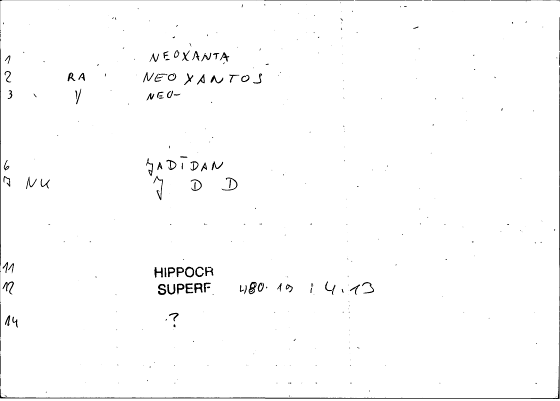 1 NEOXANTA
2 RA NEOXANTOS
3 NEO-
6 JADĪDAN
7 NK J D D
11 HIPPOCR
12 SUPERF 480.19 : 4.13
14 ?